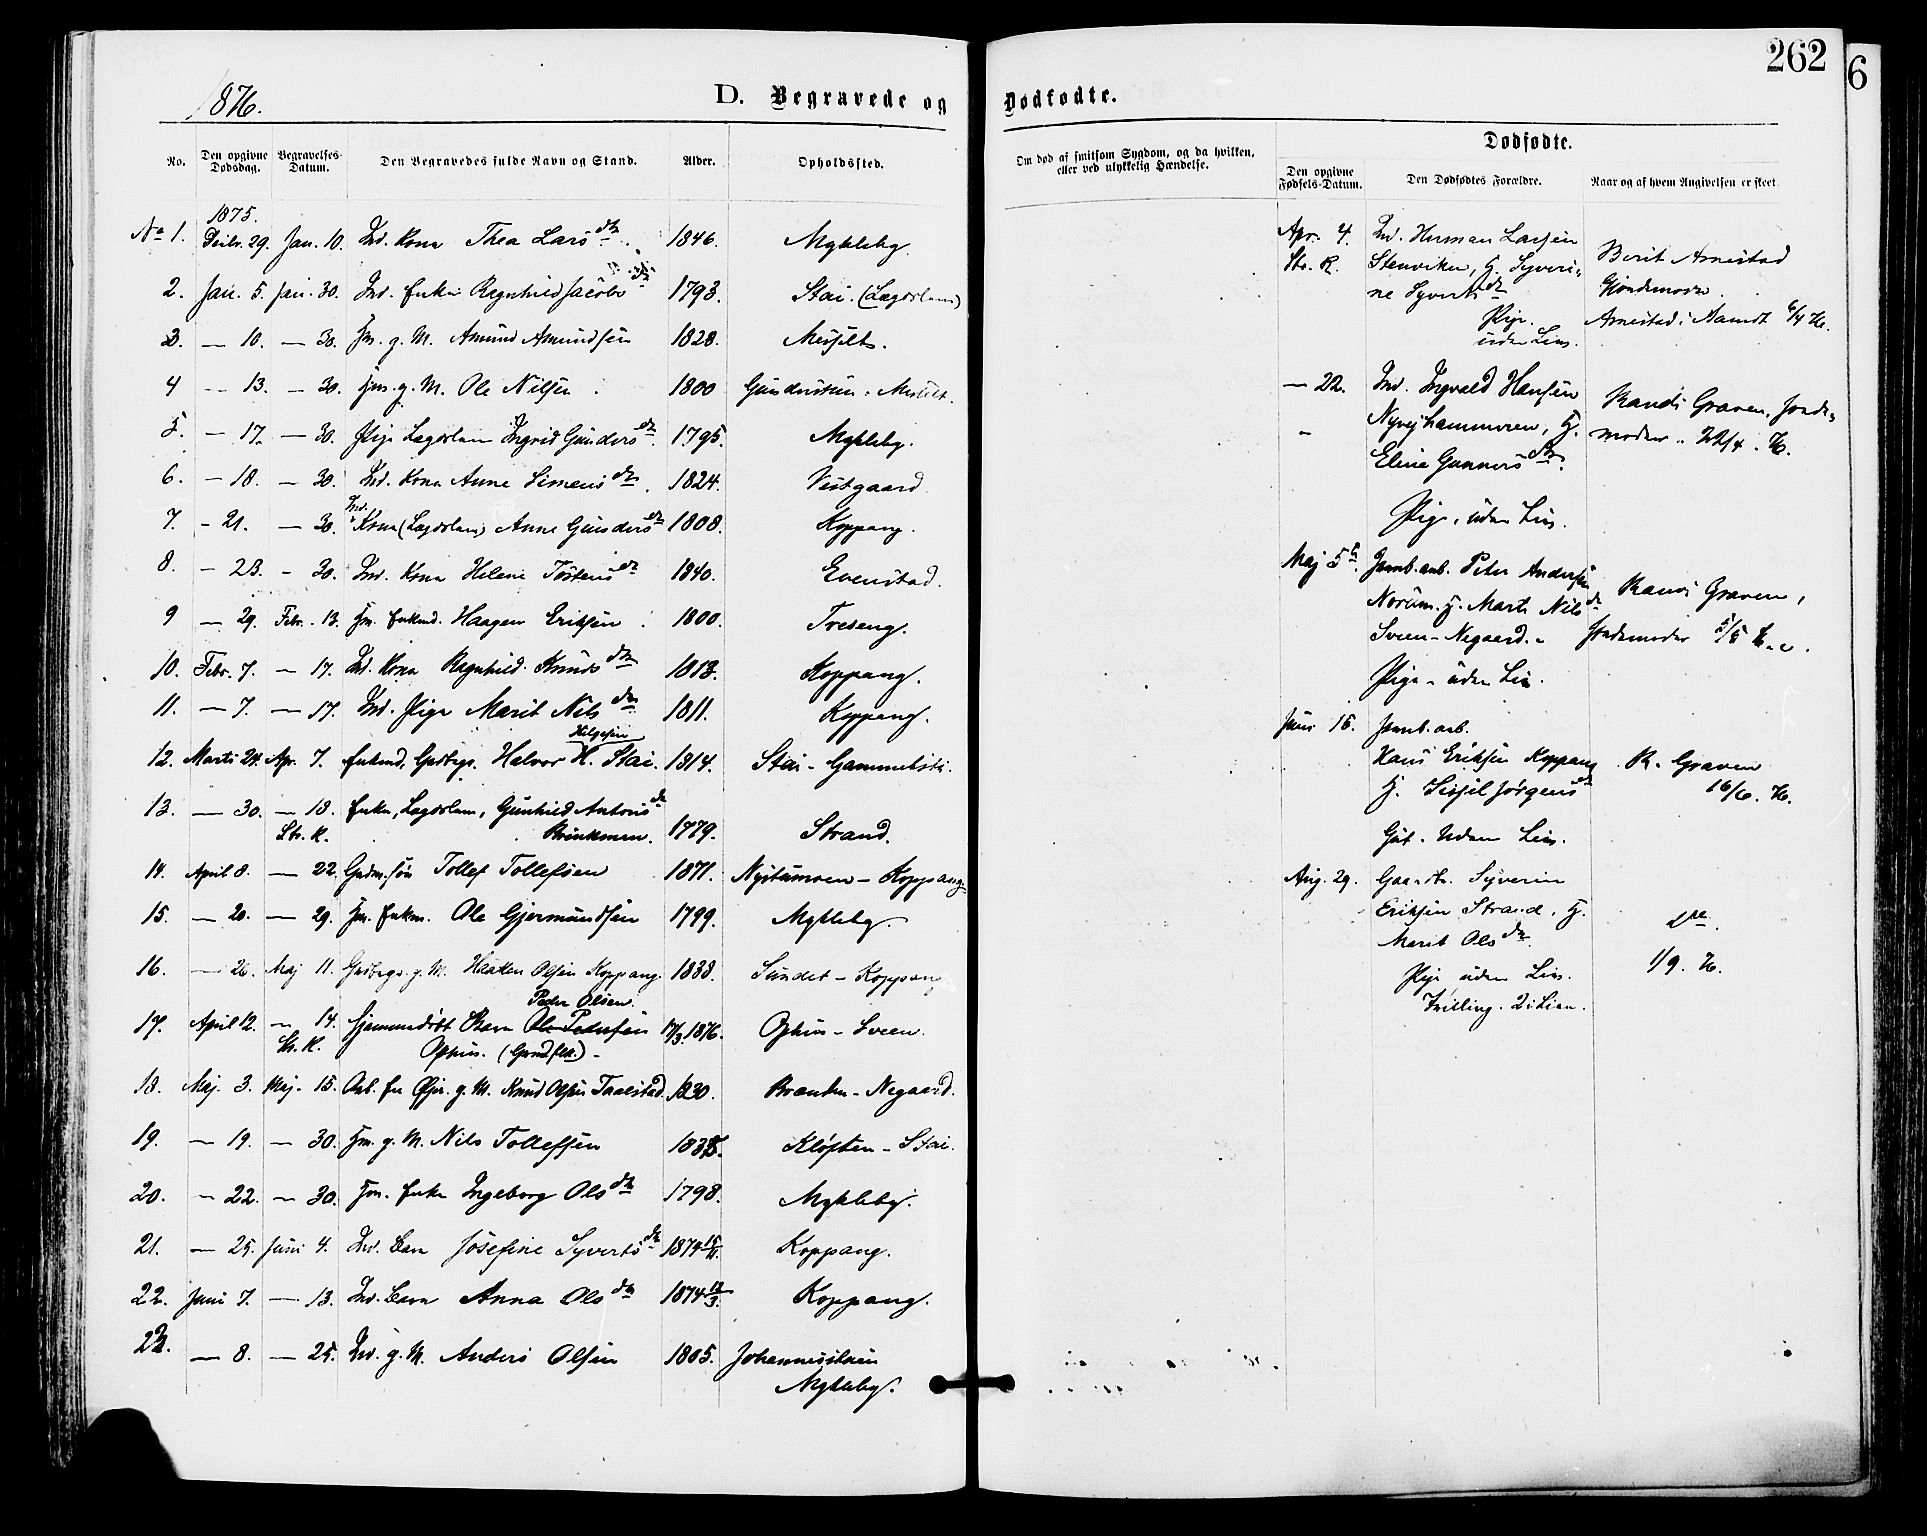 262
6
1876.
D. Begravede og Dødfødte.
No.
Den opgivne Dødsdag.
Begravelses-Datum.
Den Begravedes fulde Navn og Stand.
Alder.
Opholdssted.
Om død af smitsom Sygdom, og da hvilken, eller ved ulykkelig Hændelse.
Dødfødte.
Den opgivne Fødsels-Datum.
Den Dødfødtes Forældre.
Naar og af hvem Angivelsen er skeet.
1875.
No 1. Decbr. 29. Jan. 10. Ind. Kona Thea Larsdtr. 1846. Mykleby.
2. Jan. 5. Jan. 30. Ind. Enke Ragnhild Jacobsdtr 1793. Stai. (Lægdslem)
3. — 10. — 30. Hm. g. M. Amund Amundsen 1828. Messelt.
4 — 13. — 30. Hm. g. M. Ole Nilsen 1800 Messelt.
5. — 17. — 30. Pige Lægdslem Ingrid Gundersdtr. 1795. Mykleby.
6. — 18. — 30. Ind. Kona Anne Simensdtr. 1824. Vestgaard
7. - 21. — 30. Ind. Kona (Lægdslem) Anne Gundersdtr 1808. Koppang.
8. - 23. - 30. Ind. Kona Helene Tostensdtr 1840. Evenstad.
9 — 29. Febr. 13. Hm. Enkmd. Haagen Eriksen 1800. Treseng.
10. Febr. 7. — 17. Ind. Kona Ragnhild Knudsdtr 1813. Koppang.
11. — 7. — 17. Ind. Pige Marit Nilsdtr 1811. Koppang.
Helgesen
12. Marts 24. Apr. 7. Enkmd, Gaardbrgr. Halvor H. Stai. 1814. Stai - Gammelstu.
13. — 30. — 18. Enke, Lægdslem, Gunhild Antonsdtr
St. K. 1779. Strand.
14. April 8. — 22. Gadm. søn Tollef Tollefsen 1871. Nystumoen - Koppang
15. — 20. — 29. Hm. Enkm. Ole Gjermundsen 1799. Mykleby.
16. — 26. Maj 11. Gadbrgr. g. M. Haaken Olsen Koppang 1838. Sundet - Koppang
Peder Olsen.
17. April 12. — 14. Hjemmedøbt Barn Ole Pedersen 17/3 1876. Ophus - Sveen.
St. K. Ophus.
18. Maj. 3. Maj. 15. Arb. g. M. Knud Olsen 1830. Brænden - Negaard.
19. — 19. — 30. Hm. g. M. Nils Tollefsen Kløften - Stai.
20. — 22. — 30. Hm. Enke Ingeborg Olsdtr 1798. Mykleby.
21. — 25. Juni 4. Ind. Barn Josefine Syvertsdtr 1874 15/11. Koppang.
22. Juni 7. — 13. Ind. Barn Anna Olsdtr 1874 12/3. Koppang.
23. — 8. — 25. Ind. g. M. Anders Olsen 1805. Johannesstuen
Mykleby.
Apr. 4. Ind. Herman Larsen
St. K. Stenviken, H. Syveri-
ne Syvertsdtr
Pige
uden Liv.
Berit Arnestad
Gjordemoder
Arnestad i Aamot 6/4 76.
— 22. Ind. Ingvald Hansen
Nyvejhammeren, H.
Eline Gunnersdtr.
Pige, uden Liv.
Randi Graven, Jorde-
moder. 22/4. 76.
Maj 5te. Jernb. arb. Peter Andersen
Norum. H. Marte Nilsdtr
Sveen - Negaard. -
Pige - uden Liv.
Randi Graven,
Jordemoder 5/5 76.
Juni 16. Jernb. arb.
Hans Eriksen Koppang
H. Sissil Jørgensdtr
Gut. Uden Liv.
R. Graven
16/6. 76.
Aug. 29. Gaardbr. Syverin
Eriksen Strand, H.
Marit Olsdtr.
Pige uden Liv.
Tvilling.
Do.
1/9. 76.